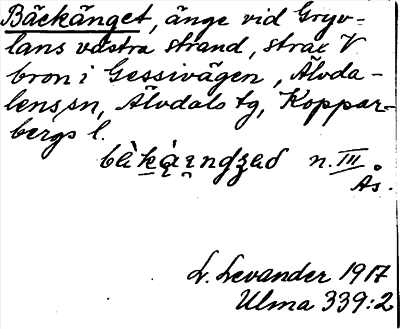 Bäckänget, änge vid Gryv-
lans västra strand, strax V
bron i Gessivägen, Älvda-
lens sn, Älvdals tg, Koppar-
bergs l.
n. III
Ås.
L. Levander 1917
Ulma 339:2